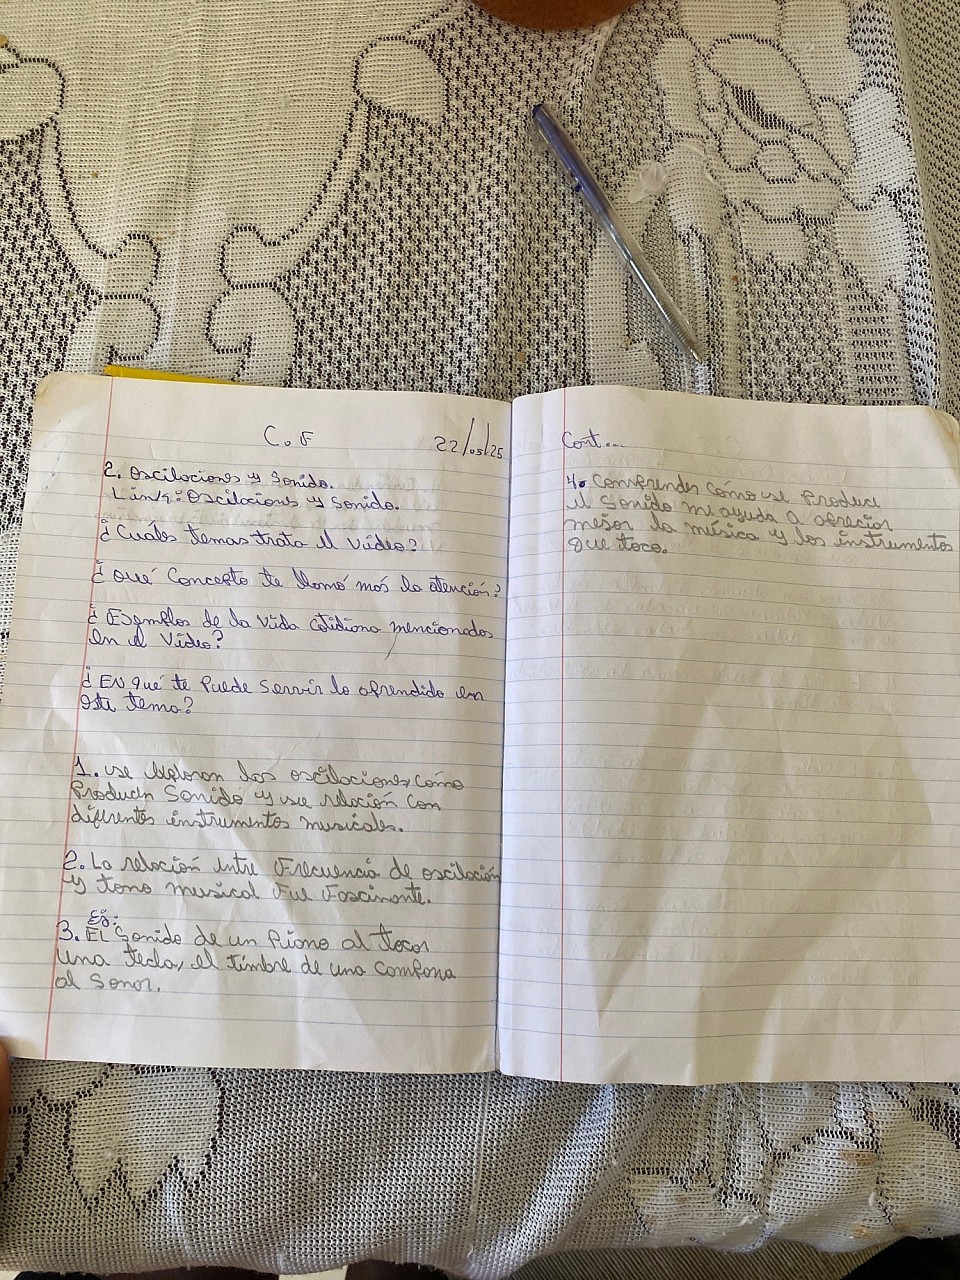 C.F 22/05/25
2. Oscilaciones y Sonido.
Link: Oscilaciones y Sonido.
¿Cuáles temas trata el vídeo?
¿Qué Concepto te llamó más la atención?
¿Ejemplos de la Vida cotidiana mencionados
en el Vídeo?
¿EN qué te Puede Servir lo aprendido en
este tema?
1. se las oscilaciones, cómo
Producen Sonido y su relación con
diferentes instrumentos musicales.
2. La relación entre Frecuencia de oscilación
y tono musical Fue Fascinante.
Ej:
3. EL Sonido de un Piano al tocar
una tecla, el timbre de una campana
al Sonar.
Cont...
4. Comprender Cómo se Produce
el Sonido me ayuda a apreciar
mejor la música y los instrumentos
que toco.